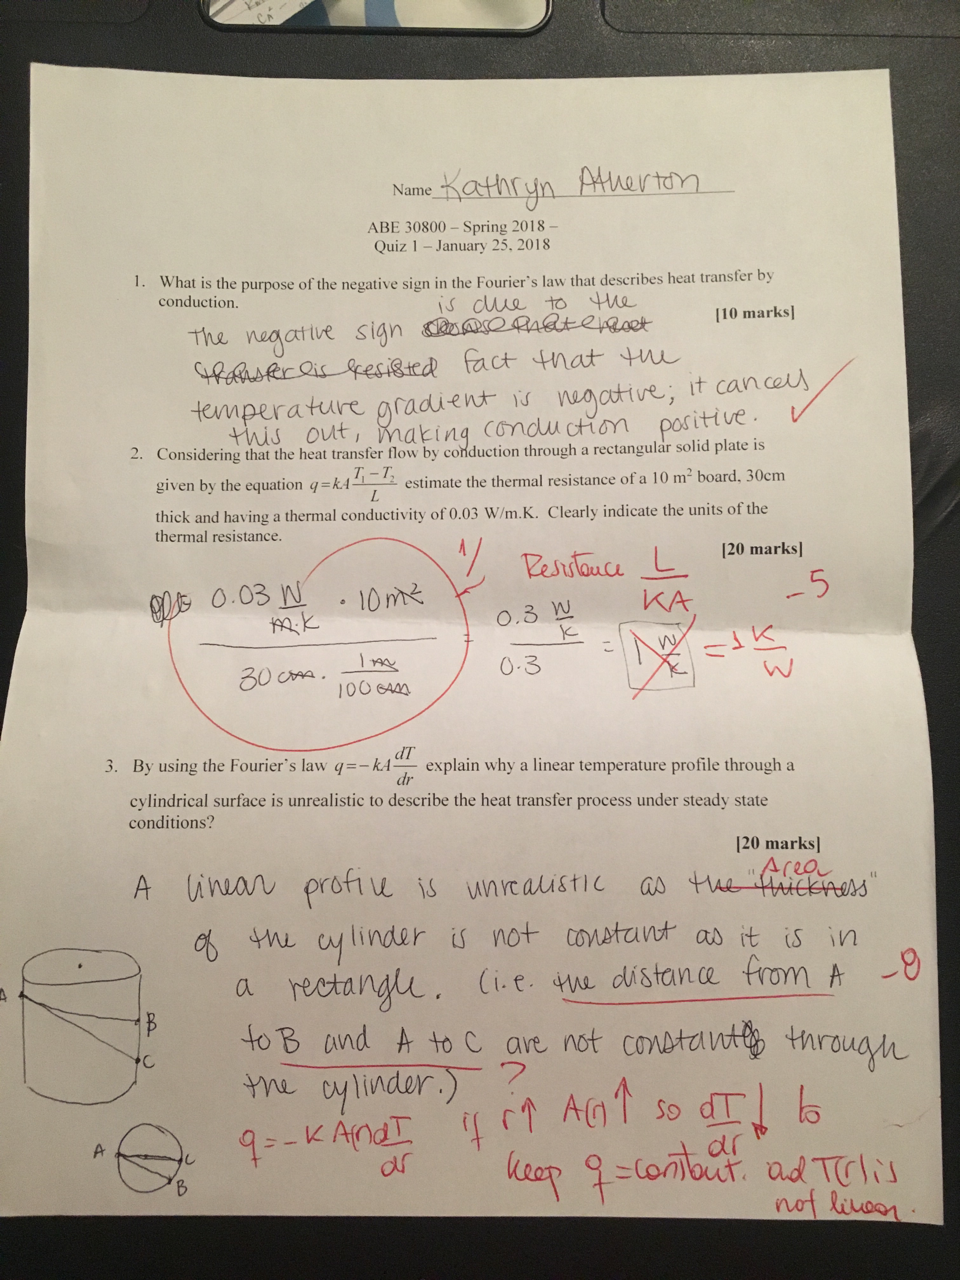 Name Kathryn Atherton
ABE 30800 – Spring 2018 –
Quiz 1 – January 25, 2018
1. What is the purpose of the negative sign in the Fourier's law that describes heat transfer by
conduction.
[10 marks]
is due to the
The negative sign
transfer is resisted fact that the
temperature gradient is negative; it cancels
this out, making conduction positive.
2. Considering that the heat transfer flow by conduction through a rectangular solid plate is
given by the equation q=kA (T₁–T₂)/L estimate the thermal resistance of a 10 m² board, 30cm
thick and having a thermal conductivity of 0.03 W/m.K. Clearly indicate the units of the
thermal resistance.
[20 marks]
1/
Resistance L/KA
-5
0.03 W/m·K · 10m² / 30cm · 1m/100cm = 0.3 W/K / 0.3 = 1 W/K = 1 K/W
3. By using the Fourier's law q=–kA dT/dr explain why a linear temperature profile through a
cylindrical surface is unrealistic to describe the heat transfer process under steady state
conditions?
[20 marks]
"Area"
A linear profile is unrealistic as the thickness
of the cylinder is not constant as it is in
a rectangle. (i.e. the distance from A
-8
to B and A to C are not constant through
the cylinder.) ?
A
B
C
A
C
B
q=-KA(r)dT/dr if r↑ A(r)↑ so dT/dr↓ to
keep q=constant. ad T(r) is
not linear.